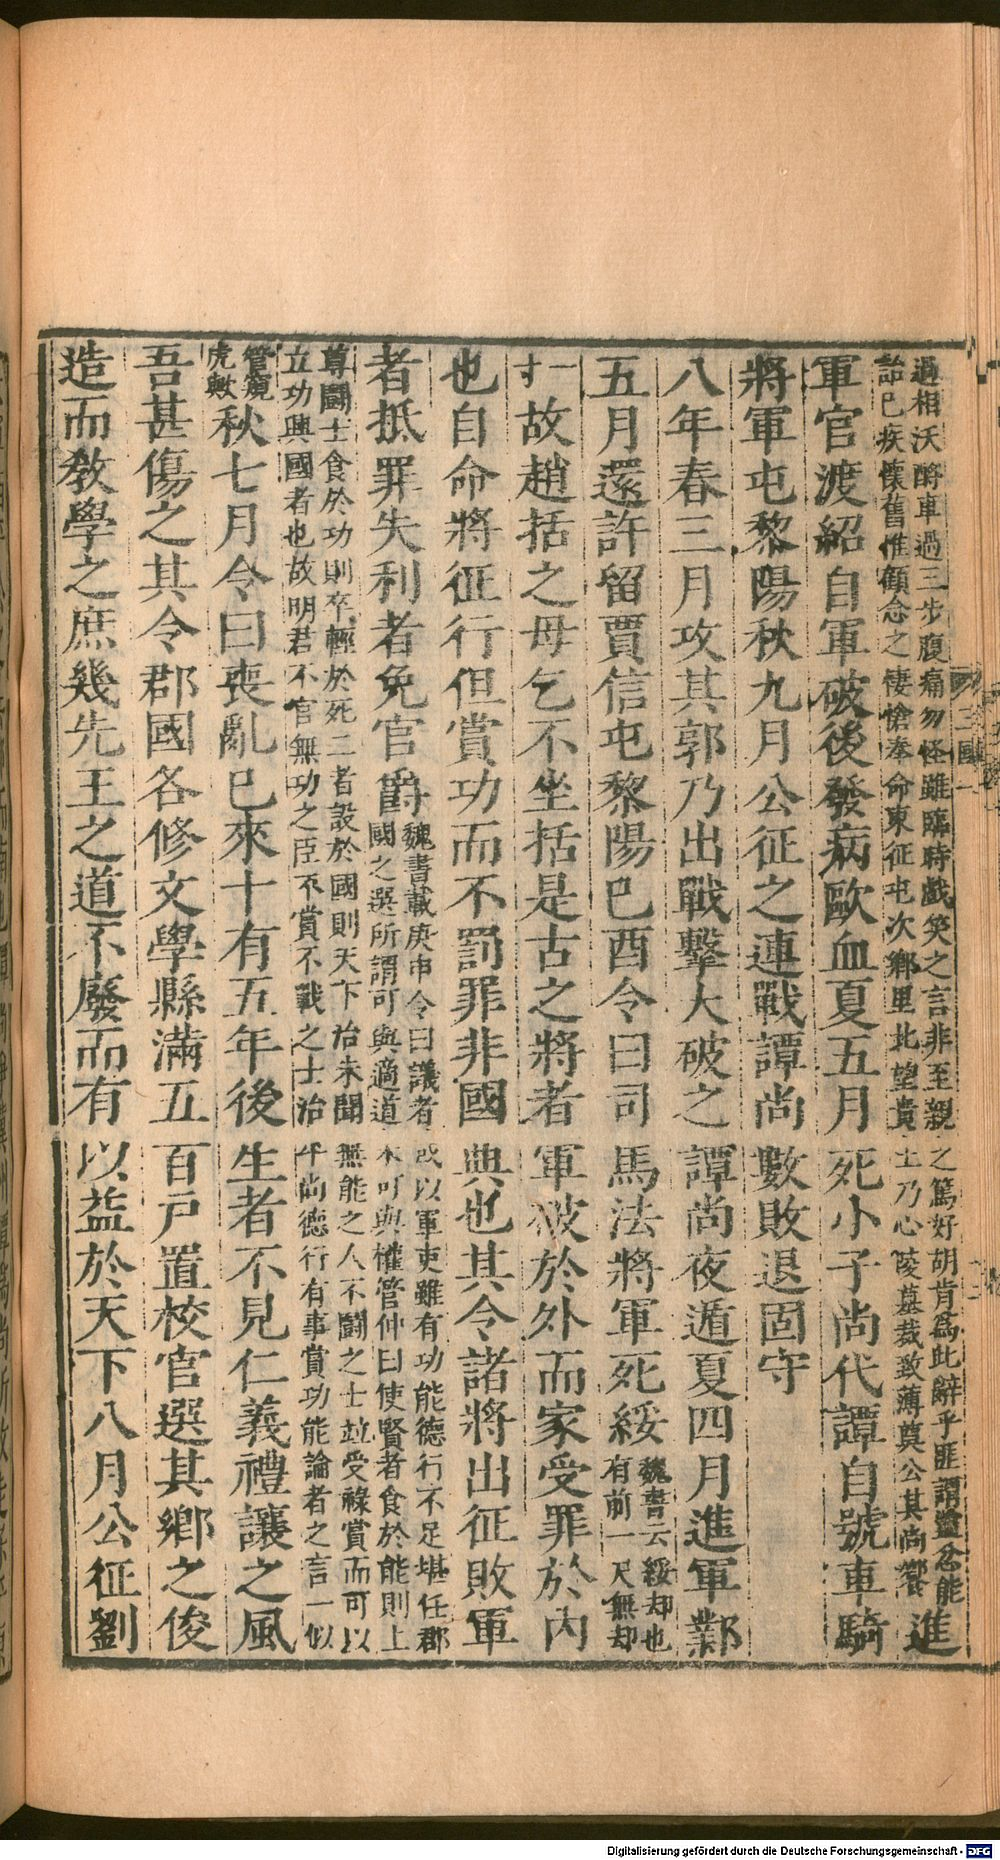 過相沃酹車過三步腹痛勿怪雖臨時戲笑之言非至親之篤好胡肯爲此辭乎匪謂靈忿能
詒已疾懷舊惟顧念之悽愴奉命東征屯次鄉里北望貴土乃心陵墓裁致薄奠公其尚饗進
軍官渡紹自軍破後發病歐血夏五月死小子尚代譚自號車騎
將軍屯黎陽秋九月公征之連戰譚尚數敗退固守
八年春三月攻其郭乃出戰擊大破之譚尚夜遁夏四月進軍鄴
五月還許留賈信屯黎陽己酉令曰司馬法將軍死綏
魏書云綏却也
有前一尺無却
一寸故趙括之母乞不坐括是古之將者軍破於外而家受罪於内
也自命將征行但賞功而不罰罪非國典也其令諸將出征敗軍
者抵罪失利者免官爵
魏書載庚申令曰議者或以軍吏雖有功能德行不足堪任郡
國之選所謂可與適道未可與權管仲曰使賢者食於能則上
尊鬬士食於功則卒輕於死二者設於國則天下治未聞無能之人不鬬之士並受祿賞而可以
立功興國者也故明君不官無功之臣不賞不戰之士治平尚德行有事賞功能論者之言一似
管窺
虎歟
秋七月令曰喪亂已來十有五年後生者不見仁義禮讓之風
吾甚傷之其令郡國各修文學縣滿五百戶置校官選其鄉之俊
造而敎學之庶幾先王之道不廢而有以益於天下八月公征劉
Digitalisierung gefördert durch die Deutsche Forschungsgemeinschaft - DFG